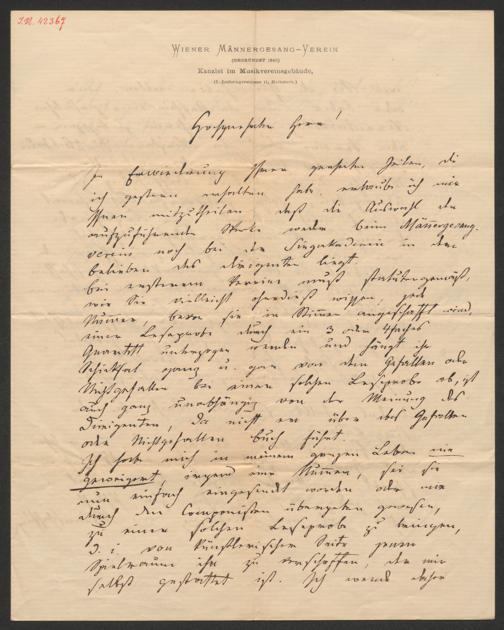 I.N. 42367
WIENER MÄNNERGESANG-VEREIN
(GEGRÜNDET 1843)
Kanzlei im Musikvereinsgebäude,
Hochgeehrter Herr!
In Erwiederung Ihrer geehrten Zeilen, die
ich gestern erhalten habe, erlaube ich mir
Ihnen mitzutheilen daß die Auswahl der
aufzuführenden Werke weder beim Männergesang-
verein noch bei der Singakademie in dem
belieben des Dirigenten liegt.
Bei ersterem Vereine muß statutengemäß,
wie Sie vielleicht ohnedieß wissen, jede
Numer bevor sie in Stimmen angeschafft wird,
einer Leseprobe durch ein 3 oder 4faches
Quartett unterzogen werden und hängt ihr
Schicksal ganz u. gar von dem Gefallen oder
Nichtgefallen bei einer solchen Leseprobe ab, ist
auch ganz unabhängig von der Meinung des
Dirigenten, da nicht er über das Gefallen
oder Nichtgefallen Buch führt.
Ich habe mich in meinem ganzen Leben nie
geweigert irgend eine Numer, sei sie
nun einfach eingesendet worden oder mir
durch den Componisten übergeben gewesen,
zu einer solchen Leseprobe zu bringen,
d. i. von künstlerischer Seite jenen
Spielraum ihr zu verschaffen, der mir
selbst gestattet ist. Ich werde daher